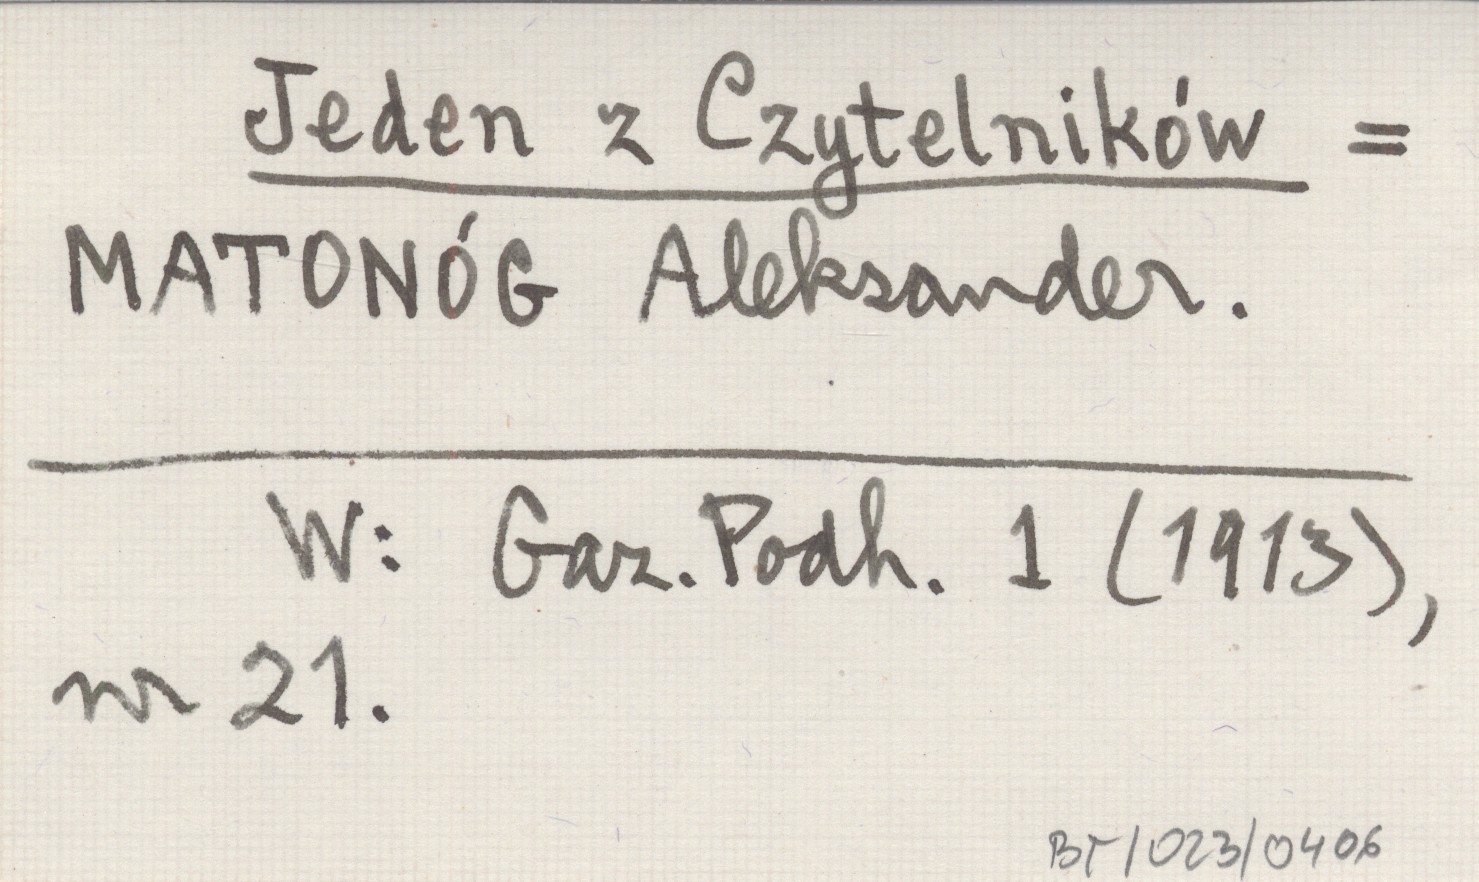 Jeden z Czytelników =
MATONÓG Aleksander.
W: Gaz. Podh. 1 (1913),
nr 21.
BT/023/0406